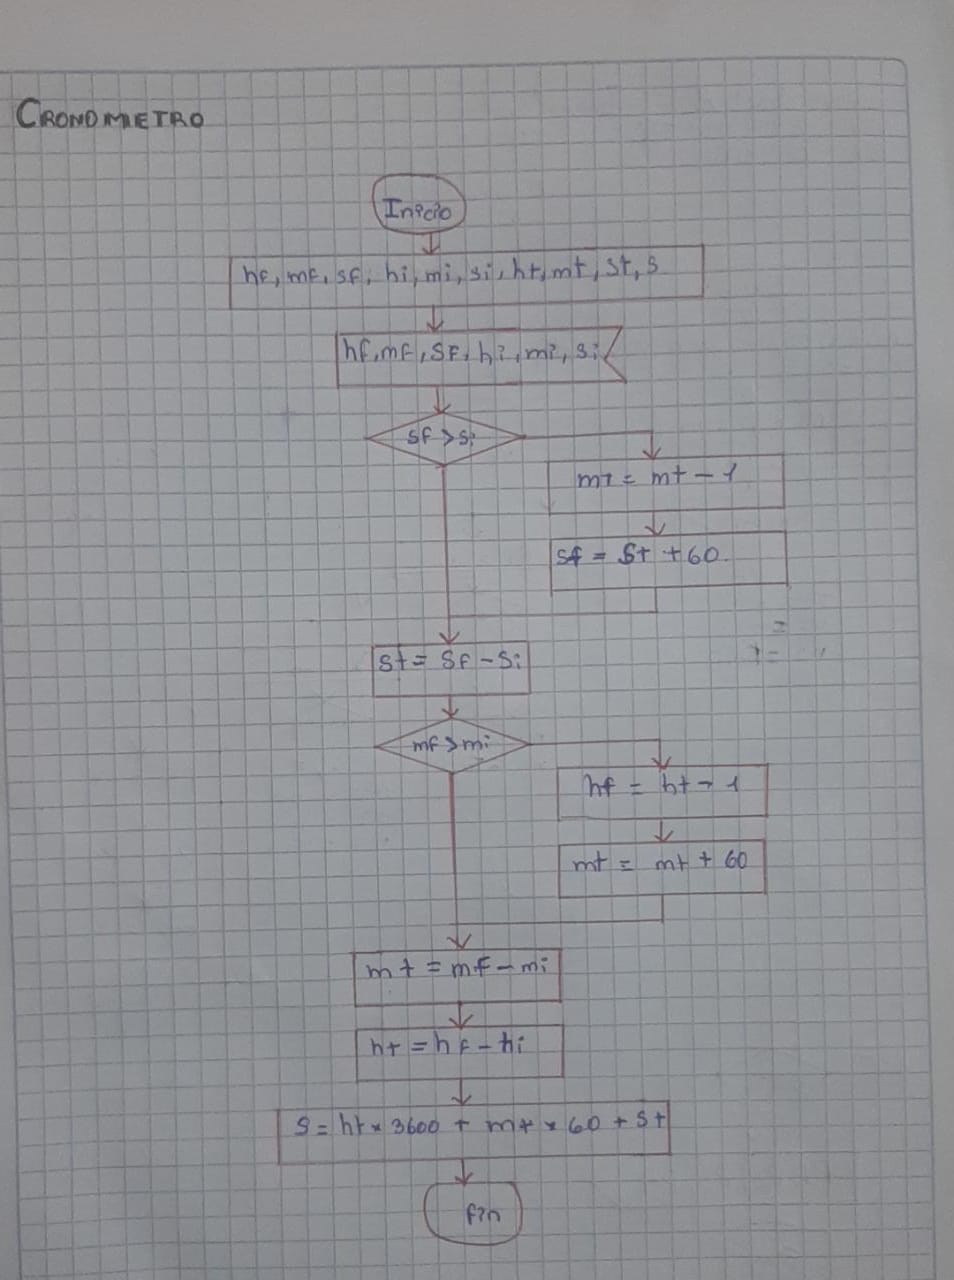 CRONOMETRO
Inicio
hf, mf, sf, hi, mi, si, ht, mt, st, s
hf, mf, sf, hi, mi, si
sf > si
mt = mt - 1
sf = st + 60
st = sf - si
mf > mi
hf = ht - 1
mt = mt + 60
mt = mf - mi
ht = hf - hi
s = ht * 3600 + mt * 60 + st
fin